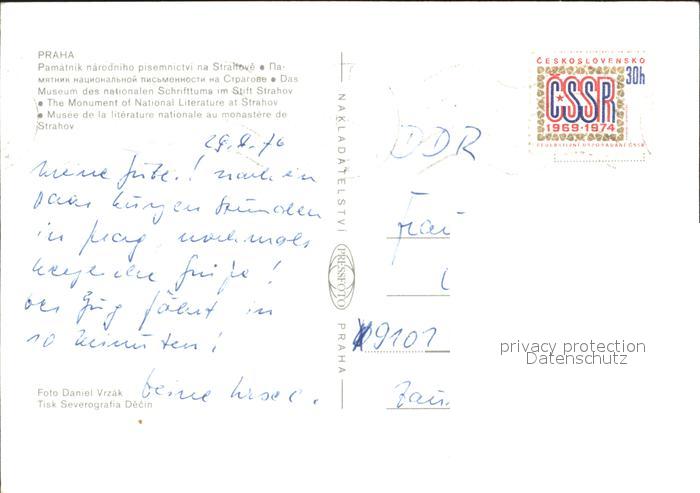 PRAHA
Památník národního písemnictví na Strahově ● Па-
мятник национальной письменности на Страгове ● Das
Museum des nationalen Schrifttums im Stift Strahov
● The Monument of National Literature at Strahov
● Musée de la littérature nationale au monastère de
Strahov
Meine Gute! nach ein
paar kurzen Stunden
in Prag, nochmals
herzliche Grüße!
der Zug fährt in
10 Minuten!
Deine
Foto Daniel Vrzák
Tisk Severografia Děčín
NAKLADATELSTVÍ
PRESSFOTO
PRAHA
ČESKOSLOVENSKO
30h
ČSSR
1969-1974
FEDERATIVNÍ USPOŘÁDÁNÍ ČSSR
DDR
Frau
9101
privacy protection
Datenschutz